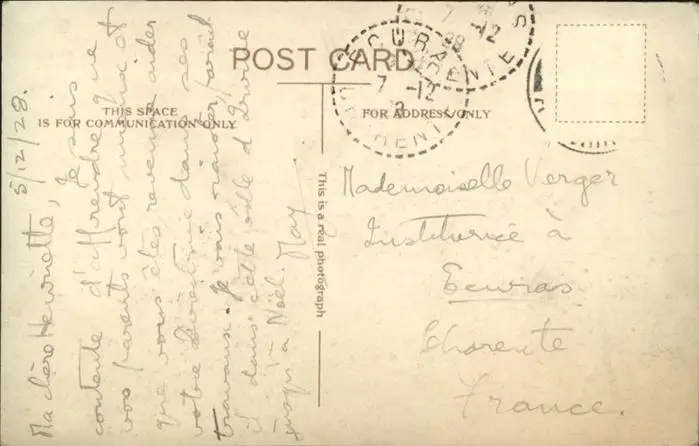 POST CARD
THIS SPACE
IS FOR COMMUNICATION ONLY
FOR ADDRESS ONLY
This is a real photograph
5/12/28.
Ma chère Henriette, Je suis
contente d'apprendre que
vos parents vont mieux et
que vous êtes revenue aider
votre directrice dans ses
travaux. Je vais rester
il dans cette ville d
jusqu'à Noël. May
Mademoiselle Verger
Institutrice à
Ecuras
Charente
France.
ECURAS
CHARENTE
7 -12
28
7 -12